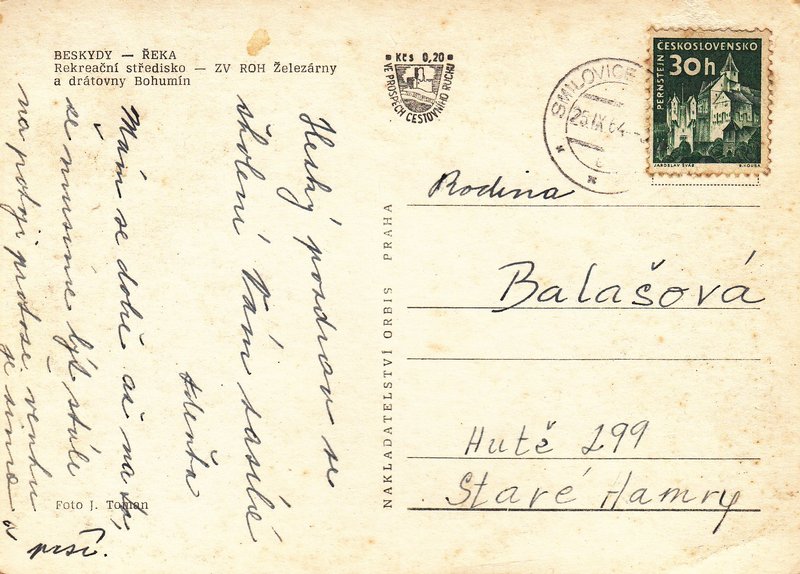 BESKYDY — ŘEKA
Rekreační středisko — ZV ROH Železárny
a drátovny Bohumín
Kčs 0,20
VE PROSPĚCH CESTOVNÍHO RUCHU
SMILOVICE
25.IX.64
ČESKOSLOVENSKO
30h
PERNŠTEJN
JAROSLAV ŠVÁB
Hezký pozdrav se
školení Vám zasílá
Zdeňka
Mám se dobře až na to,
že musíme být stále
na pokoji protože venku
je zima a
prší.
Rodina
Balašová
Hutě 299
Staré Hamry
NAKLADATELSTVÍ ORBIS PRAHA
Foto J. Toman